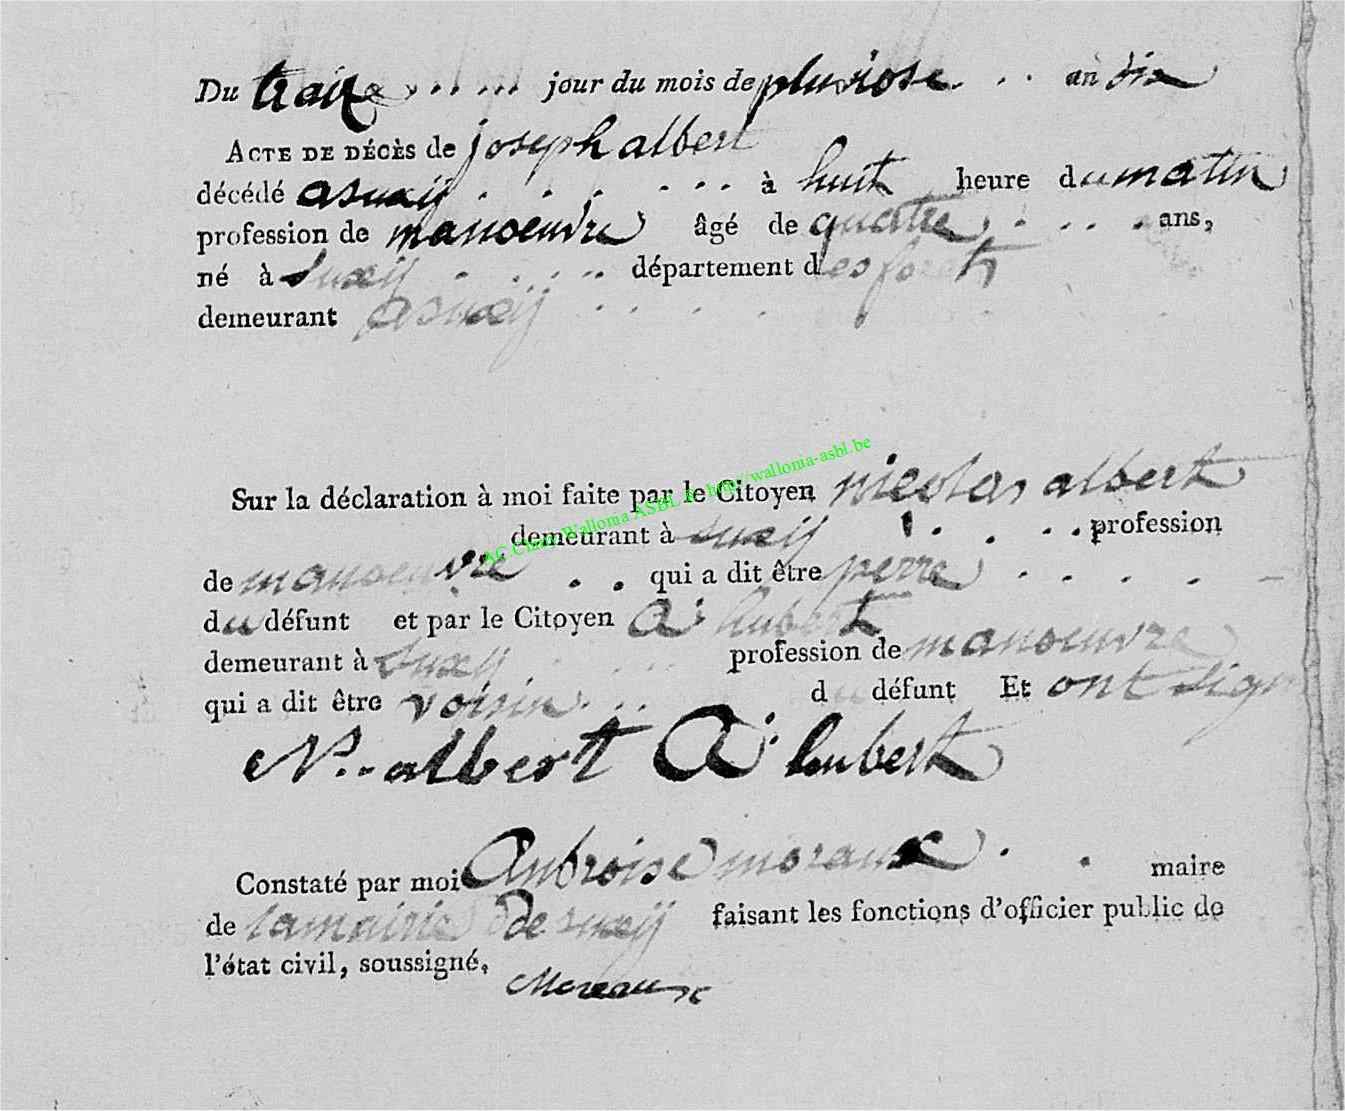 Du traize jour du mois de pluviose an dix
ACTE DE DÉCÈS de joseph albert
décédé a suxÿ à huit heure du matin
profession de manoeuvre âgé de quatre ans,
né à Suxÿ département des forets
demeurant a suxÿ
Sur la déclaration à moi faite par le Citoyen nicolas albert
demeurant à suxÿ profession
de manoeuvre qui a dit être perre
du défunt et par le Citoyen A: hubert
demeurant à Suxÿ profession de manoeuvre
qui a dit être voisin du défunt Et ont sign
N.. albert A: hubert
Constaté par moi Ambroise moraux maire
de la mairie de suxÿ faisant les fonctions d'officier public de
l'état civil, soussigné.
Moreaux
http://wallonia-asbl.be